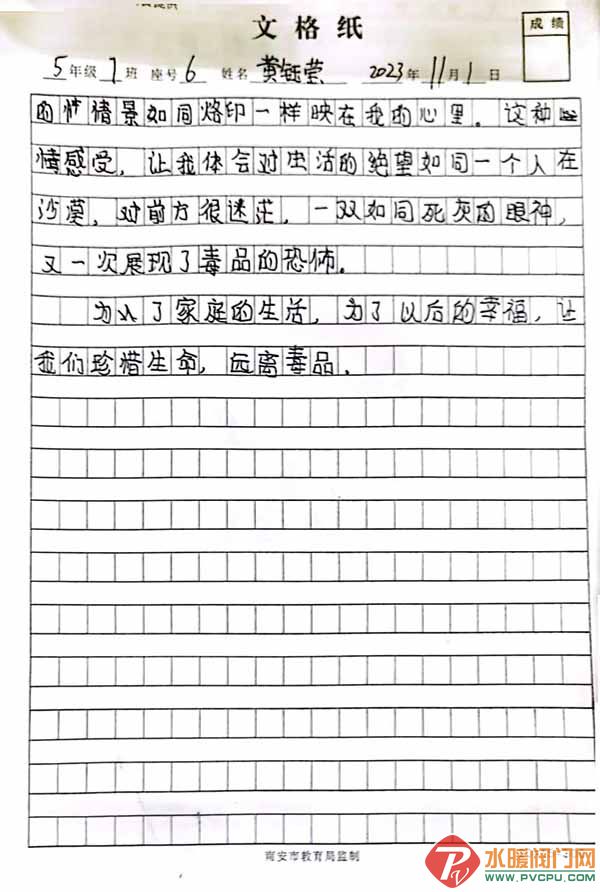 文格纸
成绩
5年级7班 座号6 姓名 黄钰莹 2023年11月1日
的情情景如同烙印一样映在我的心里。这种心
情感受，让我体会对生活的绝望如同一个人在
沙漠，对前方很迷茫，一双如同死灰的眼神，
又一次展现了毒品的恐怖。
为了家庭的生活，为了以后的幸福，让
我们珍惜生命，远离毒品。
南安市教育局监制
水暖阀门网
WWW.PVCPU.COM